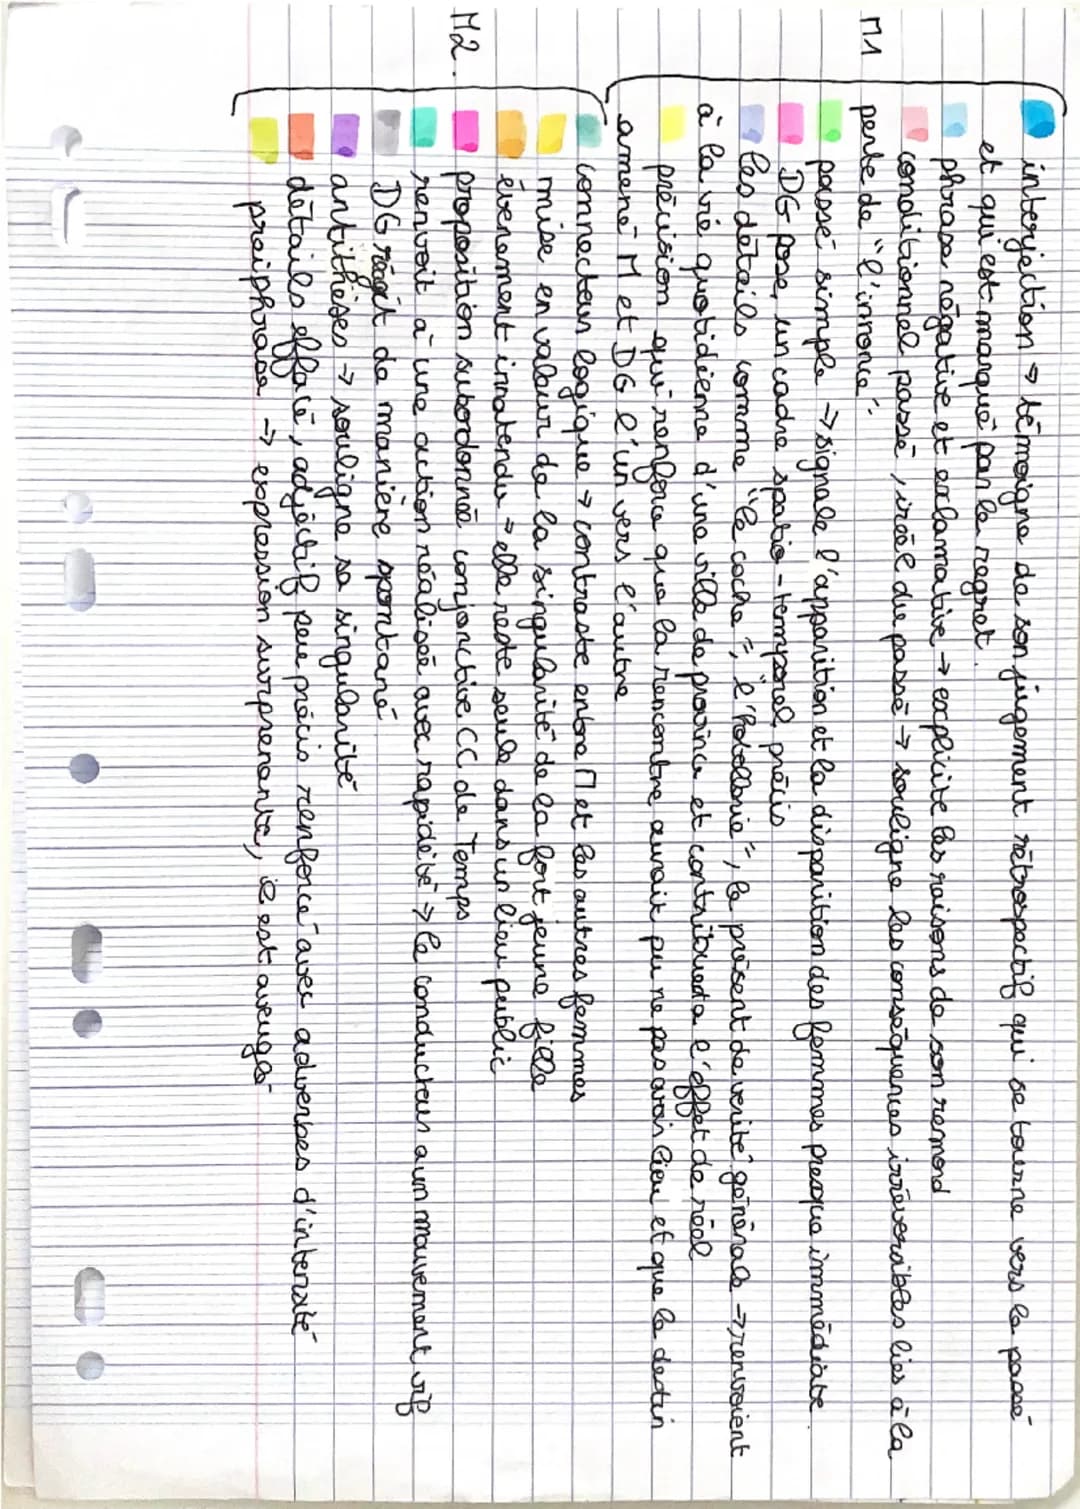 interjection → témoigne de son jugement rétrospectif qui se tourne vers le passé
et qui est marqué par le regret.
phrase négative et exlamative → explicite les raisons de son remord
M1
conditionnel passé, irréel du passé → souligne les conséquences irréversibles liés à la
perte de "l'innonce".
passé simple → signale l'apparition et la disparition des femmes presque immédiate.
DG pose un cadre spatio-temporel précis
les détails comme "le coche", "l'hotellerie", le présent de verité générale → renvoient
à la vie quotidienne d'une ville de province et contribuent a l'effet de réel
précision qui renforce que la rencontre aurait pu ne pas avoir lieu et que le destin
amené M et DG l'un vers l'autre
connecteur logique → contraste entre M et les autres femmes
mise en valeur de la singularité de la fort jeune fille
évenement innatendu → elle reste seule dans un lieu public
M2.
proposition subordonnée conjonctive CC de Temps
renvoit à une action réalisée avec rapidité → le conducteur a um mouvement vif
DG réagit de manière spontané
antithèses → souligne sa singularité
détails effacé, adjectif peu précis renforcé avec adverbes d'intensité
preiphrase → expression surprenante, il est aveuglé